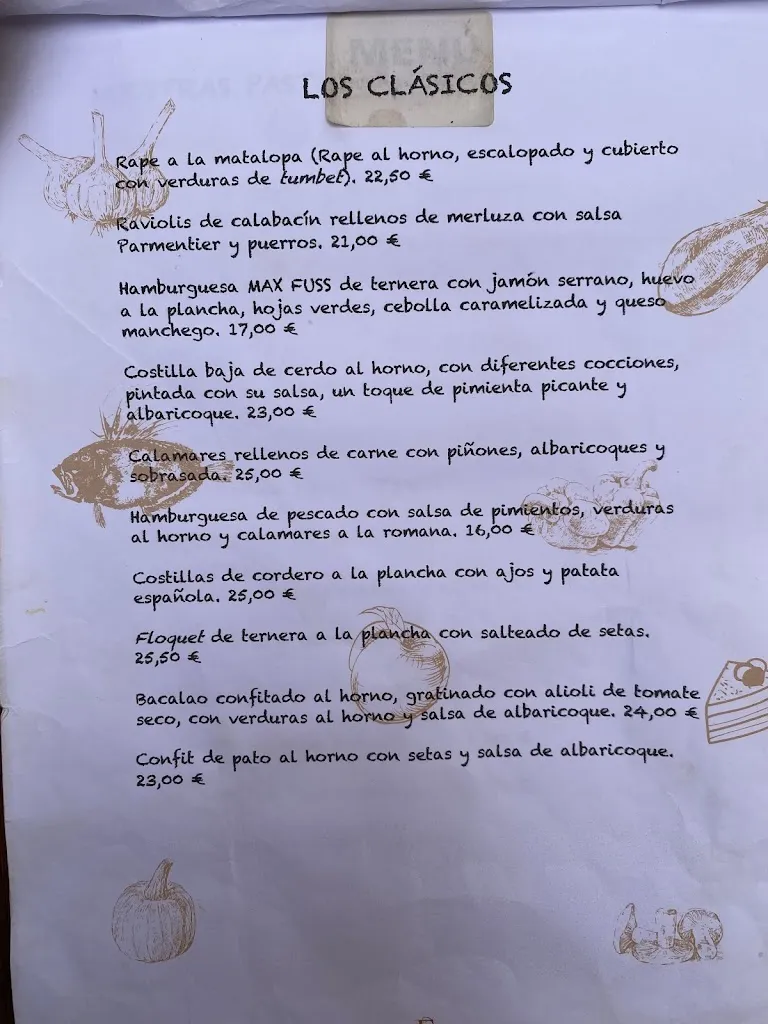 MENU
LOS CLÁSICOS
Rape a la matalopa (Rape al horno, escalopado y cubierto
con verduras de tumbet). 22,50 €
Raviolis de calabacín rellenos de merluza con salsa
Parmentier y puerros. 21,00 €
Hamburguesa MAX FUSS de ternera con jamón serrano, huevo
a la plancha, hojas verdes, cebolla caramelizada y queso
manchego. 17,00 €
Costilla baja de cerdo al horno, con diferentes cocciones,
pintada con su salsa, un toque de pimienta picante y
albaricoque. 23,00 €
Calamares rellenos de carne con piñones, albaricoques y
sobrasada. 25,00 €
Hamburguesa de pescado con salsa de pimientos, verduras
al horno y calamares a la romana. 16,00 €
Costillas de cordero a la plancha con ajos y patata
española. 25,00 €
Floquet de ternera a la plancha con salteado de setas.
25,50 €
Bacalao confitado al horno, gratinado con alioli de tomate
seco, con verduras al horno y salsa de albaricoque. 24,00 €
Confit de pato al horno con setas y salsa de albaricoque.
23,00 €